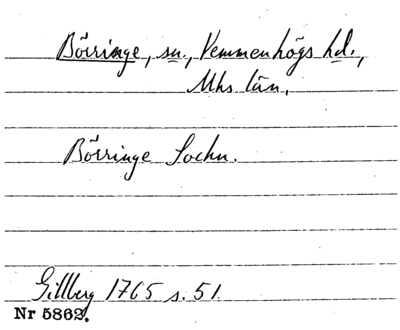 Börringe, sn., Vemmenhögs hd.,
Mhs län.
Börringe Sochn.
Gillberg 1765 s. 51.
Nr 5862.